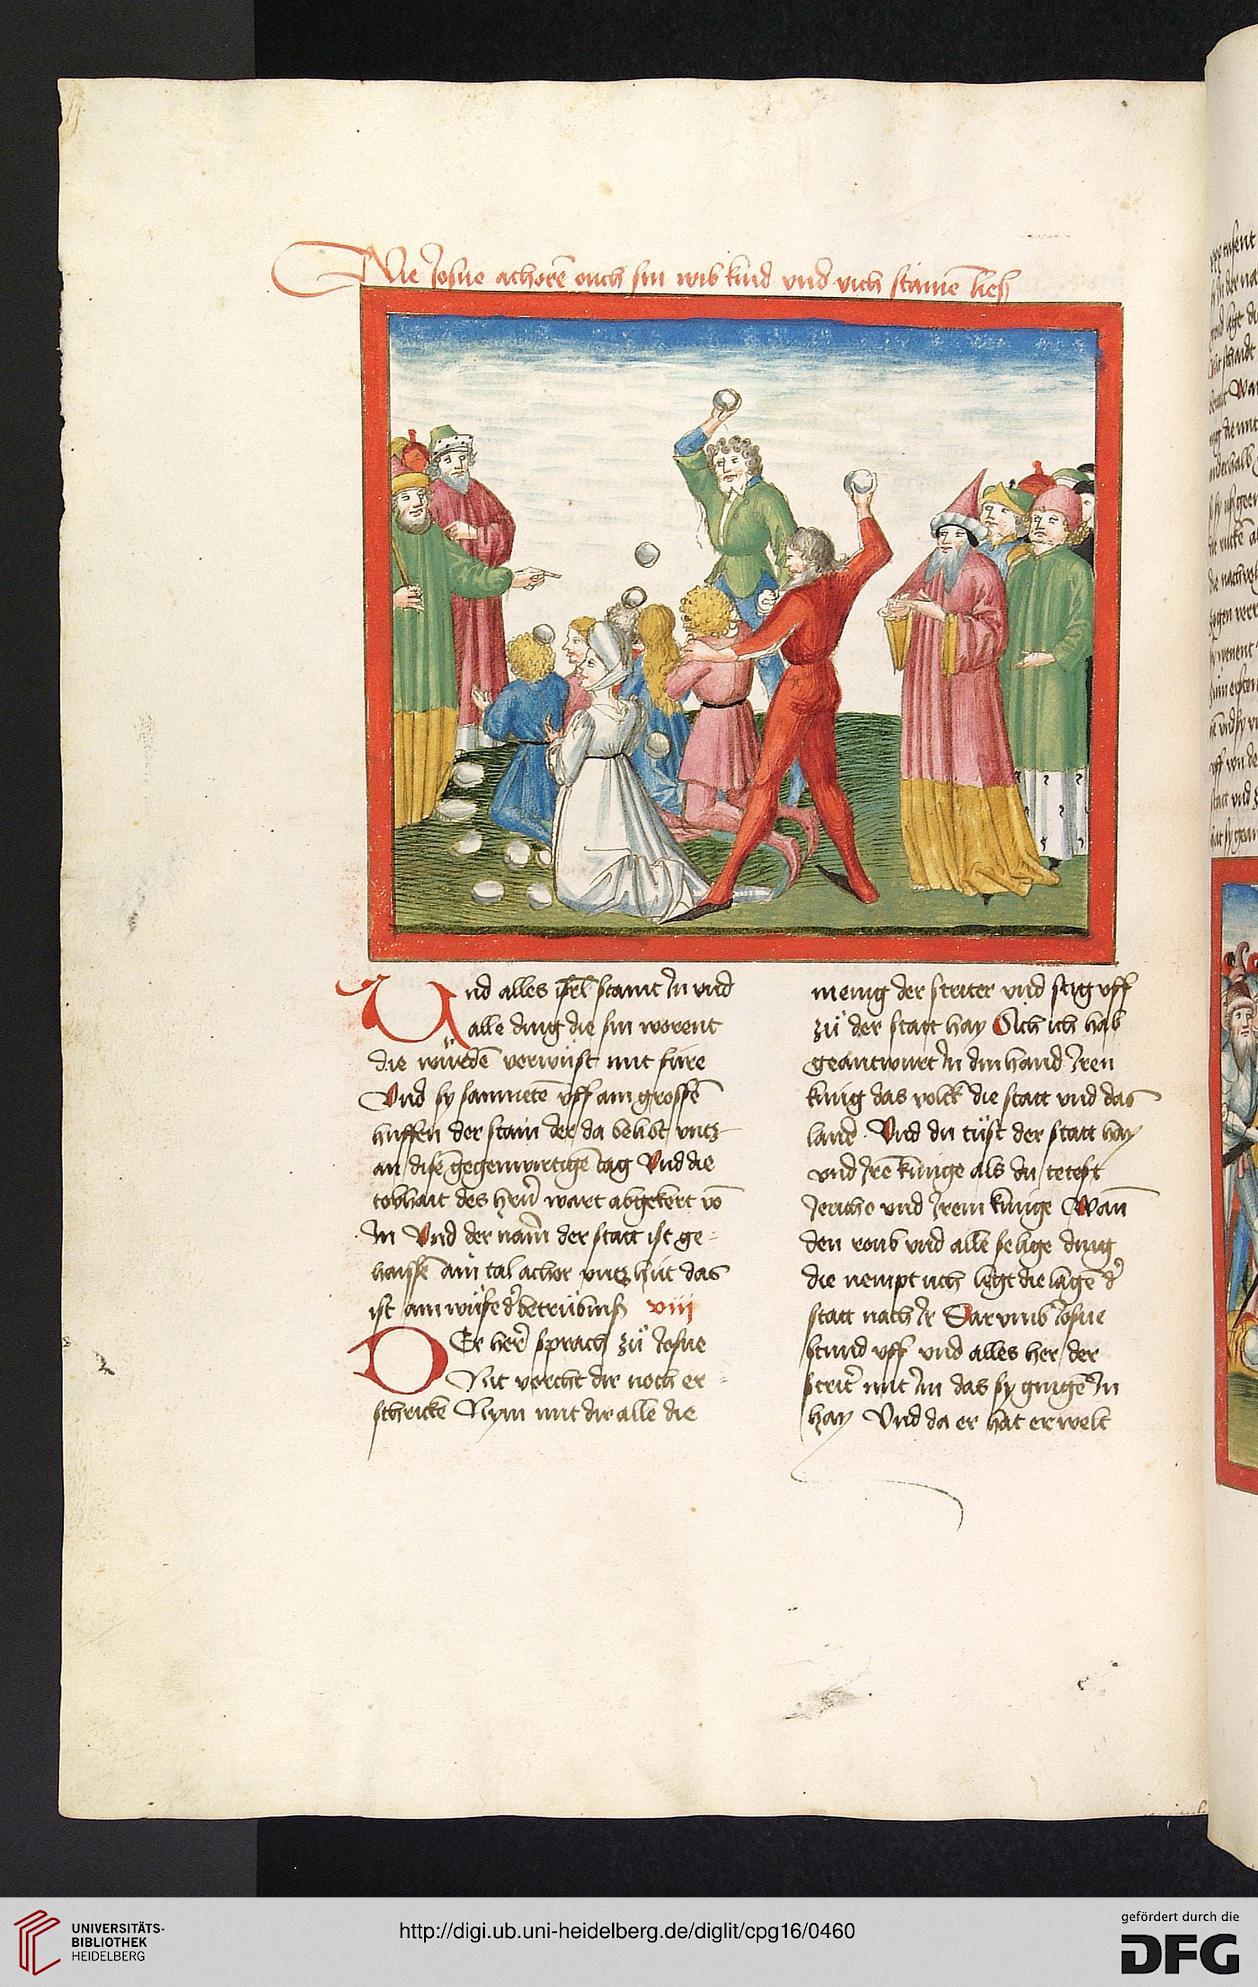 Wie Josue achorē ouch sin wib kind vnd vich stainē liesß
Und alles isrl̄ staint Jn vnd
alle ding die sin worent
die wurdē verwust mit fúre
Vnd sy samnetē vff ain grossē
huffen der stain der da belibt vntz
an disē gegenwirtigē tag Vnd die
tobhait des herr̄ wart abgekert vō
Jm Vnd der nam̄ der statt ist ge-
haissē ain tal achor vntz hút das
ist
viij
DEr her̄ sprach zů Josue
Nit vorcht dir noch er-
schricke Nym mit dir alle die
menig der striter vnd stig vff
zů der statt hay Sich ich hab
geantwurt Jn din hand Jren
kúnig das volck die statt vnd das
land Vnd du túst der statt hay
vnd Jrē kúnige als du tetest
Jericho vnd Jrem kúnige Wan̄
den roub vnd alle selige ding
die nempt úch legt die lagē d'
statt nach Jr Darvmb Josue
stund vff vnd alles her der
strit' mit Jm das sy gingē Jn
hay Vnd da er hat erwelt
UNIVERSITÄTS-
BIBLIOTHEK
HEIDELBERG
http://digi.ub.uni-heidelberg.de/diglit/cpg16/0460
gefördert durch die
DFG